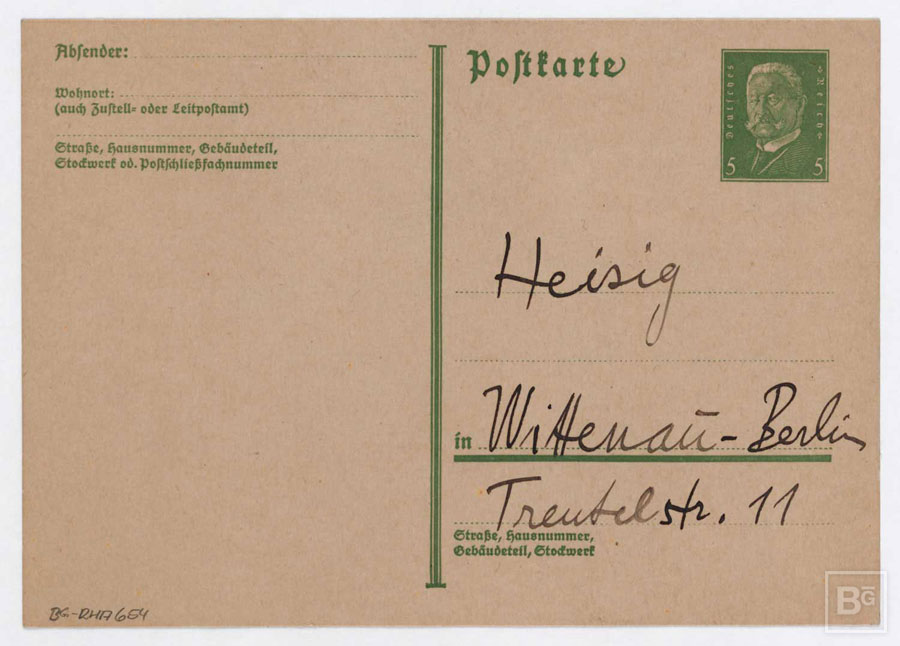 Absender:
Wohnort:
(auch Zustell- oder Leitpostamt)
Straße, Hausnummer, Gebäudeteil,
Stockwerk od. Postschließfachnummer
Postkarte
Deutsches Reich
5 5
Heisig
in Wittenau-Berlin
Treutelstr. 11
Straße, Hausnummer,
Gebäudeteil, Stockwerk
BG-RHA 654
BG